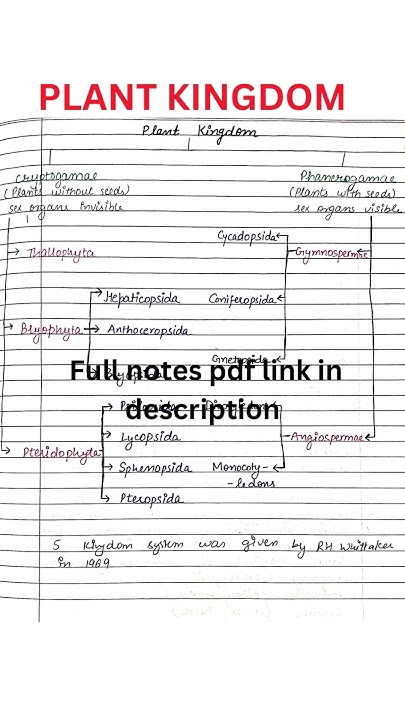 PLANT KINGDOM
Plant Kingdom
Cryptogamae
Phanerogamae
(Plants without seeds)
(Plants with seeds)
sex organs invisible
sex organs visible
Cycadopsida
Thallophyta
Gymnospermae
Hepaticopsida
Coniferopsida
Bryophyta
Anthoceropsida
Gnetopsida
Full notes pdf link in
description
Lycopsida
Angiospermae
Pteridophyta
Sphenopsida
Monocoty-
-ledons
Pteropsida
5 Kingdom system was given by RH Whittaker
in 1969